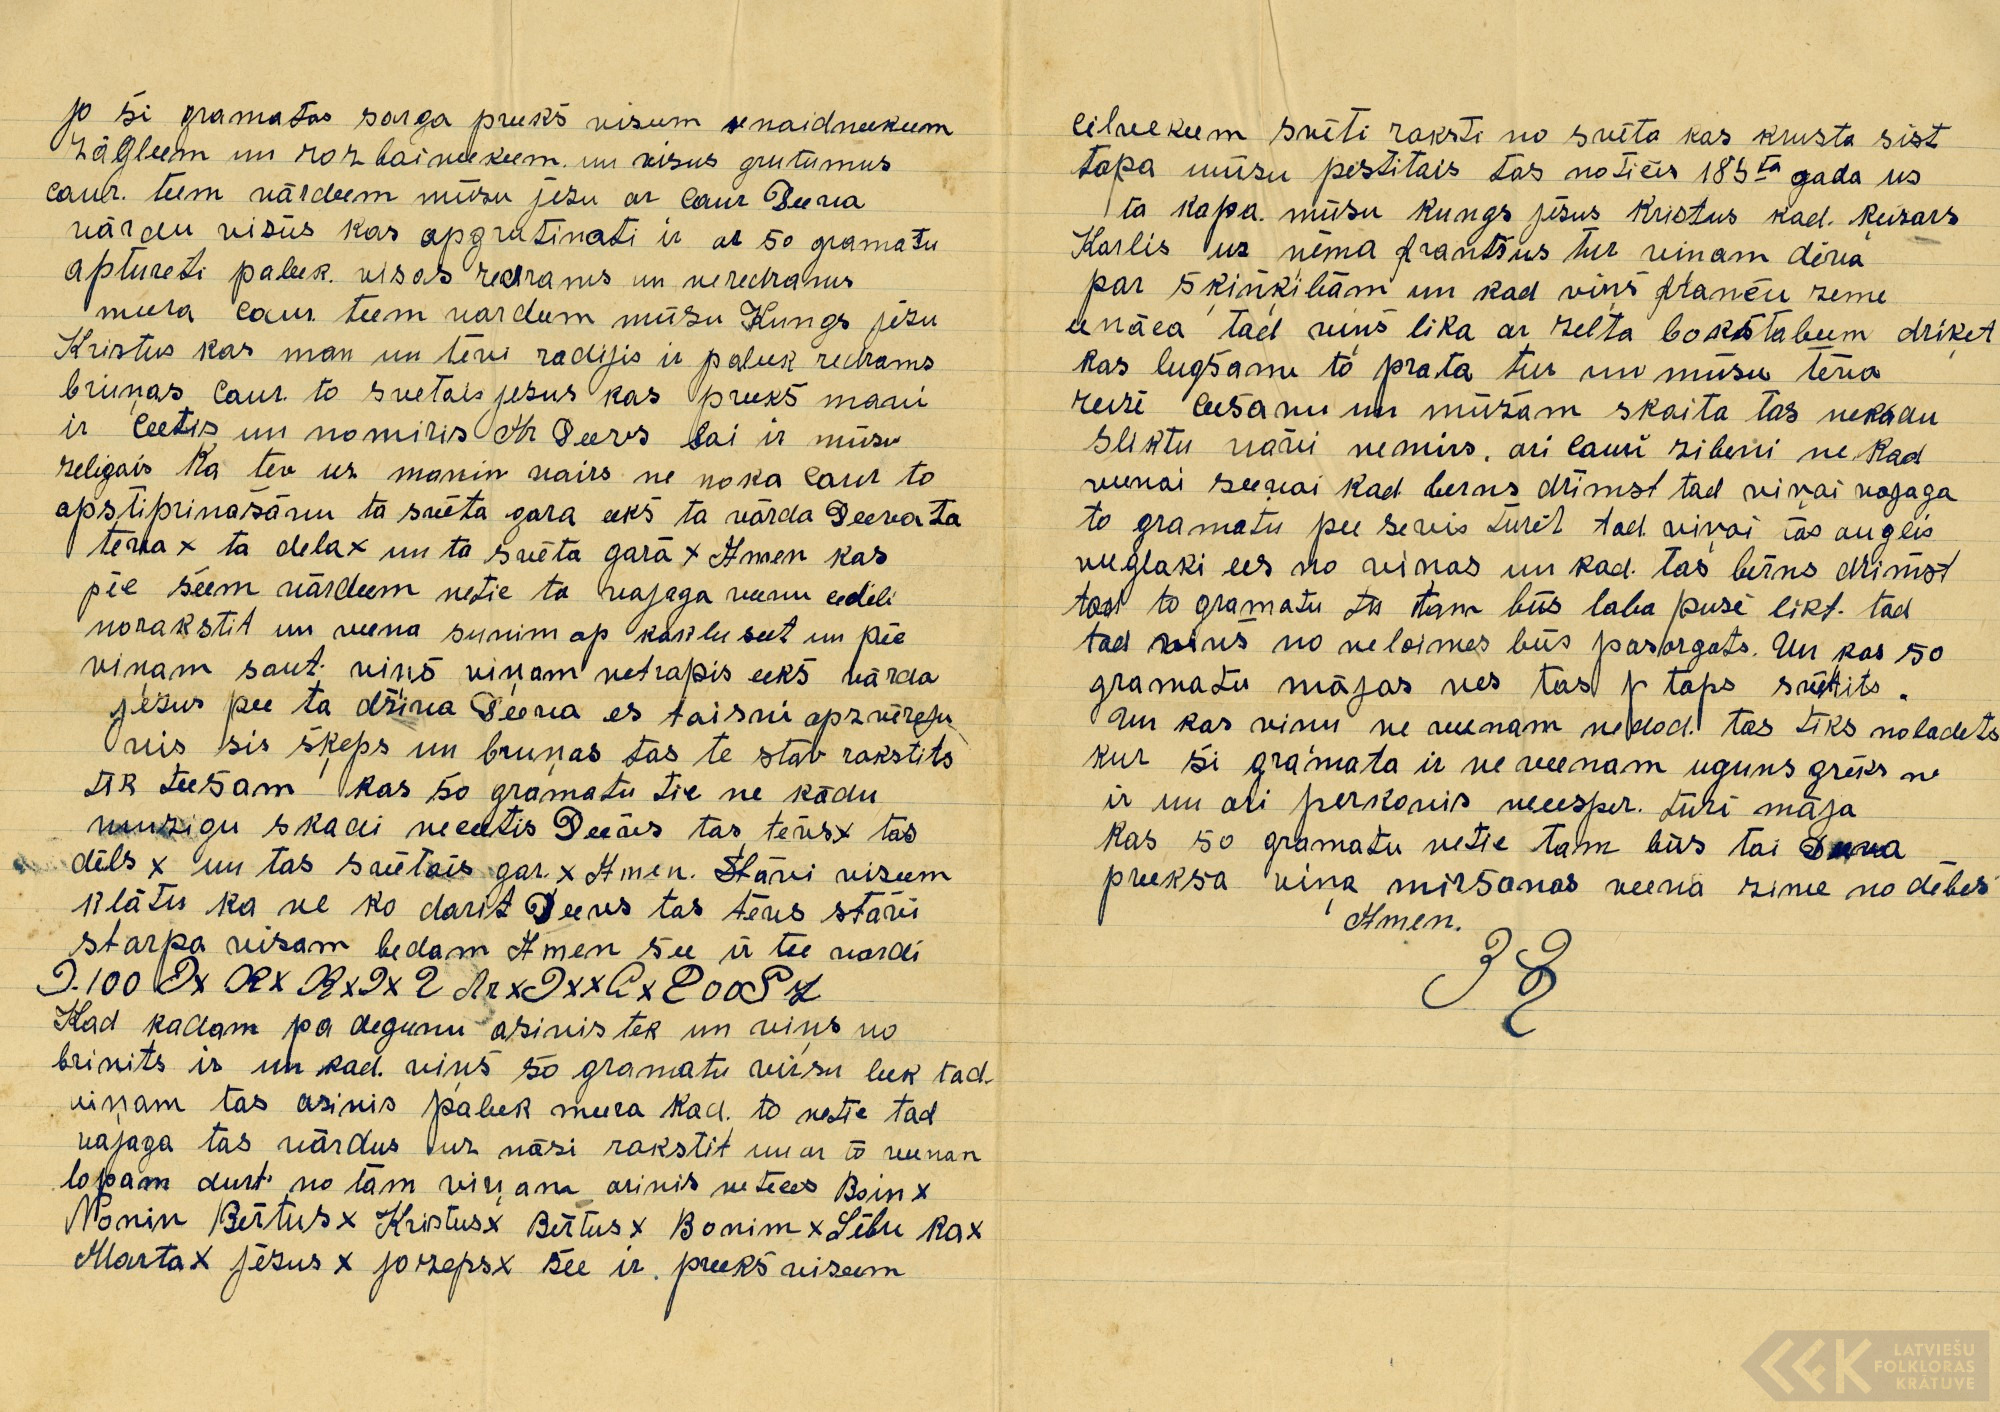 jo ši gramatas sarga preekš viseem eenaidneekeem
zägleem un rozbaineekeem. un visus grutumus
caur. teem vārdeem mūsu jesu ar caur Deeva
vārdu visüs kas apgrutinati ir ar šo gramatu
aptureti paleek. visas redzams un neredzams
meera caur teem vardeem mūsu Kungs jesu
Kristus kas man un tevi radijis ir paleek redzams
bruņas caur to svetais jesus kas preekš mani
ir Ceetis un nomiris Ar Deevs lai ir mūsu
zeligais Ka tev uz manim vairs ne noka caur to
apstiprinašanu ta svēta gara eekš ta vārda Deeva ta
tēva x ta dela x un ta svēta garā x Amen kas
pēe šeem vārdeem netic ta vajaga veenu eedēli
norakstit un veena sunim ap kaklu seet un pēe
viņam saut. viņš viņam netrapis eekš vārda
jēzus pee ta dzīva Deeva es taisni apzvēreju
vis sis šķeps un bruņas tas te stāv rakstits
tik teešam kas šo gramatu tic ne kādu
muzigu skadi neceetis Deevs tas tēvs x tas
dēls x un tas svētais gar. x Amen. Stāvi viseem
klātu ka ne ko darit Deevs tas tēvs stāvi
starpa visam bedam Amen šee ir tee vardi
J. 100 Jx Rx Rx Jx 2 Arx Jxx Cx L00S x
Kad kadam pa degunu asinis tek un viņs no
brinits ir un kad. viņš šo gramatu virsu leek tad.
viņam tas asinis paleek meera Kad. to netic tad
vajaga tas vārdus uz nāsi rakstit un ar to veenan
lopam durt. no tam viņam asinis netecēs Boin x
Nonin Bērtus x Kristus x Bērtus x Bonim x Lēbu Ka x
Marta x jēsus x jozeps x šee ir. preekš viseem
cilvekeem svēti raksti no svēta kas krusta sist
tapa mūsu pestitais tas noticis 185 ta gada us
ta kapa. mūsu kungs jēsus Kristus kad. Ķeisars
Karlis uz nēma frantsus tur vinam dēva
par škinķibām un kad viņš franču zeme
eenāca tad viņš lika ar zelta bokstabeem driķet
kas lugšanu to prata tur un mūsu tēva
reizi ceešanu un mūžam skaita tas nekadu
sliktu nāvi nemirs. ari cauri zibeni ne Kad
veenai seevai kad berns dzimst tad viņai vajaga
to gramatu pee sevis turēt tad viņai tas auglis
veeglaki ees no viņas un kad. tas bērns dzimst
tad to gramatu tu tam būs laba pusē likt. tad
tad viņš no nelaimes būs pasargats. Un kas šo
gramatu mājas nes tas p taps svētits.
Un kas vinu ne veenam nedod. tas tiks noladets
kur ši gramata ir ne veenam uguns grēks ne
ir un ari perkonis neeesper. turi māja
kas šo gramatu netic tam būs tai Deeva
preeksa viņa miršanas veena zime no debes
Amen.